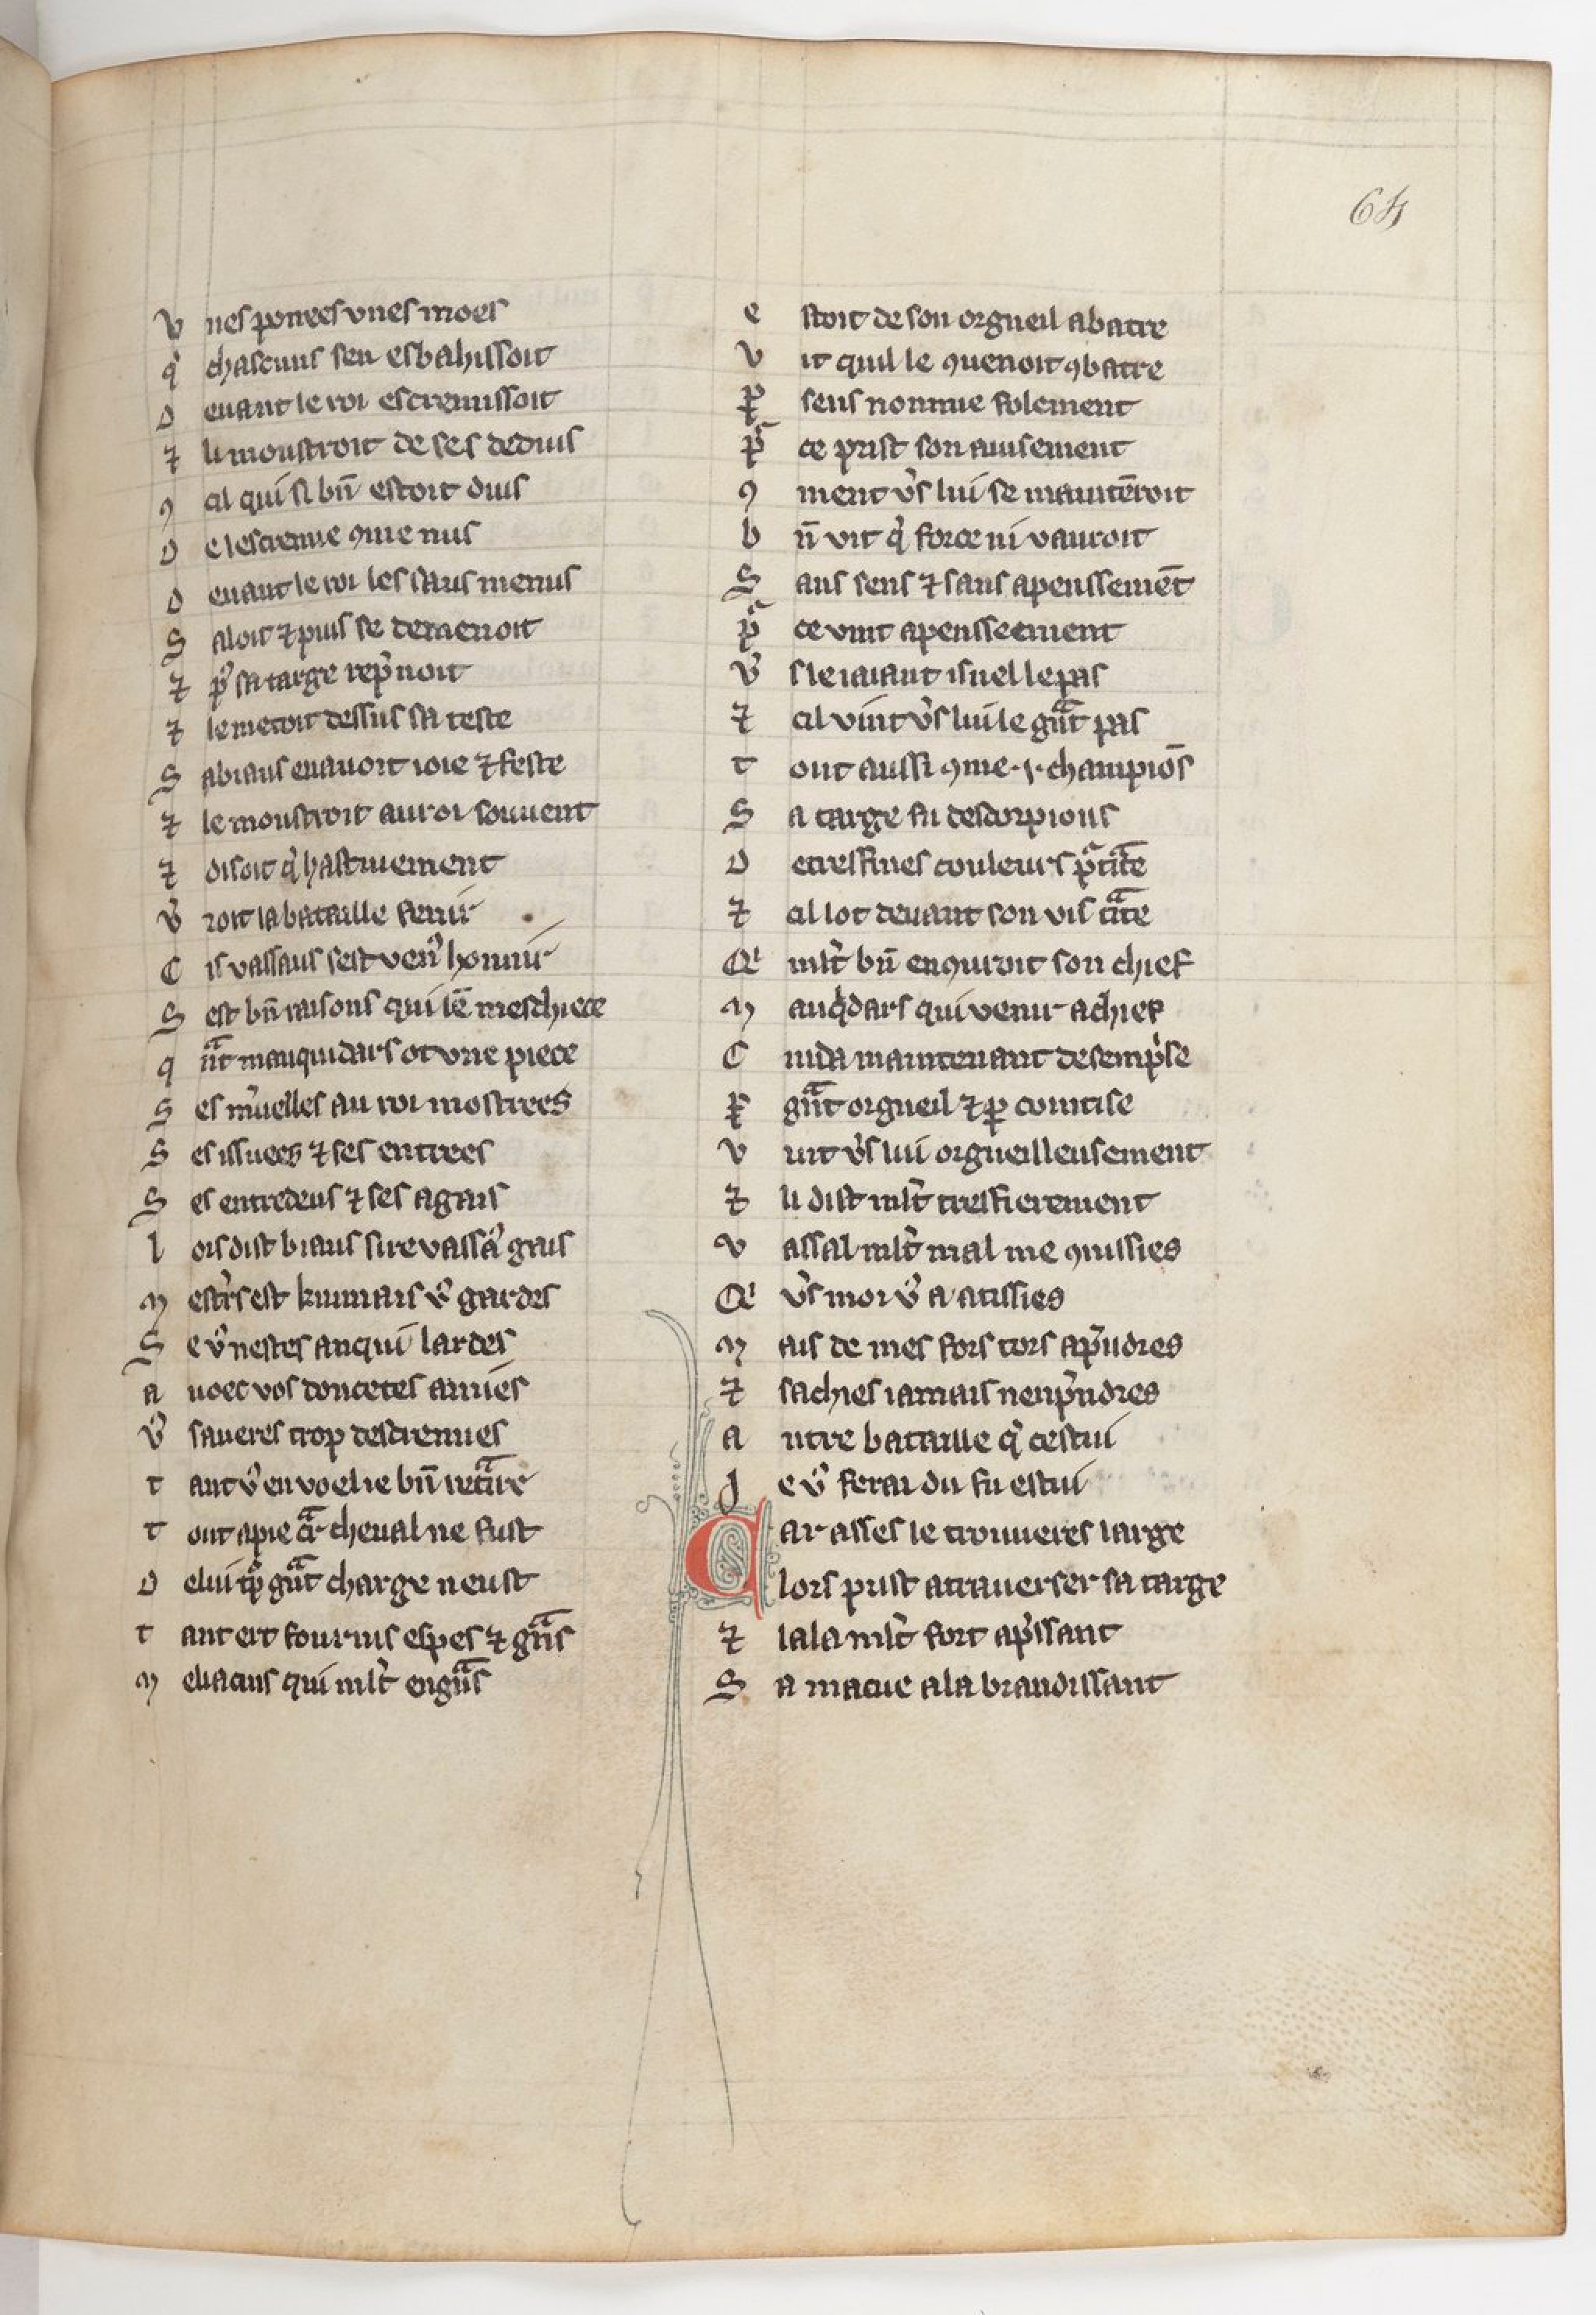 64
v nes ponees vnes moes
q̉ chascuns sen esbahissoit
D euant le roi escremissoit
⁊ li moustroit de ses deduis
ꝯ cil qui si bn̄ estoit duis
D e lescremie ꝯme nus
D euant le roi les saus menus
S aloit ⁊ puis se demenoit
⁊ p̉s sa targe rep̉noit
⁊ le metoit dessus sa teste
S abiaus en auoit ioie ⁊ feste
⁊ le moustroit au roi souuent
⁊ disoit q̉ hastiuement
v̉ roit la bataille fenir
C is vassaus sest ven⁹ honnir
S est bn̄ raisons qui lē meschiece
q ᷓnt mauquidars ot vne piece
S es m̉uelles au roi mostrees
S es issuees ⁊ ses entrees
S es entredeus ⁊ ses agais
l ors dist biaus sire vassaᷣ gais
M estr̉s est huimais v⁹ gardes
S e v⁹ nestes anqui lardes
a uoec vos doucetes amies
v⁹ saueres trop descremies
t ant v⁹ en voelie bn̄ retᷓire
t out a pie cᷓr cheual ne fust
D e lui tͦp gᷓnt charge neust
t ant ert fournis espes ⁊ gᷓns
M eliacins qui ml̉t engᷓns
e stoit de son orgueil abatre
v it quil le ꝯuenoit ꝯbatre
ꝑ sens non mie folement
pͦ ce prist son auisement
ꝯ ment v̉s lui se mautēroit
b n̄ vit q̉ force ni vauroit
S ans sens ⁊ sans apenssemēt
pͦ ce vint apensseement
v̉ s le iaiant isnel le pas
⁊ cil vint v̉s lui le gᷓnt pas
t out aussi ꝯme .i. champiōs
S a targe fu descorpions
D e tresfines couleurs pᷓtᷓite
⁊ cil lot deuant son vis tᷓite
Qͥ ml̉t bn̄ en ꝯuroit son chief
M auq̉dars qui venir a chief
C uida maintenant de semp̉se
ꝑ gᷓnt orgueil ⁊ ꝑ cointise
v int v̉s lui orgueilleusement
⁊ li dist ml̉t tresfierement
v assal ml̉t mal me ꝯnissies
Qͥ v̉s moi v⁹ a atissies
M ais de mes fors tors ap̉ndres
⁊ sachies iamais nenp̉ndres
a utre bataille q̉ cestui
J e v⁹ ferai du fu estui
C ar asses le trouueres large
lors prist a trauerser sa targe
⁊ lala ml̉t fort ap̉ssant
S a macue ala brandissant